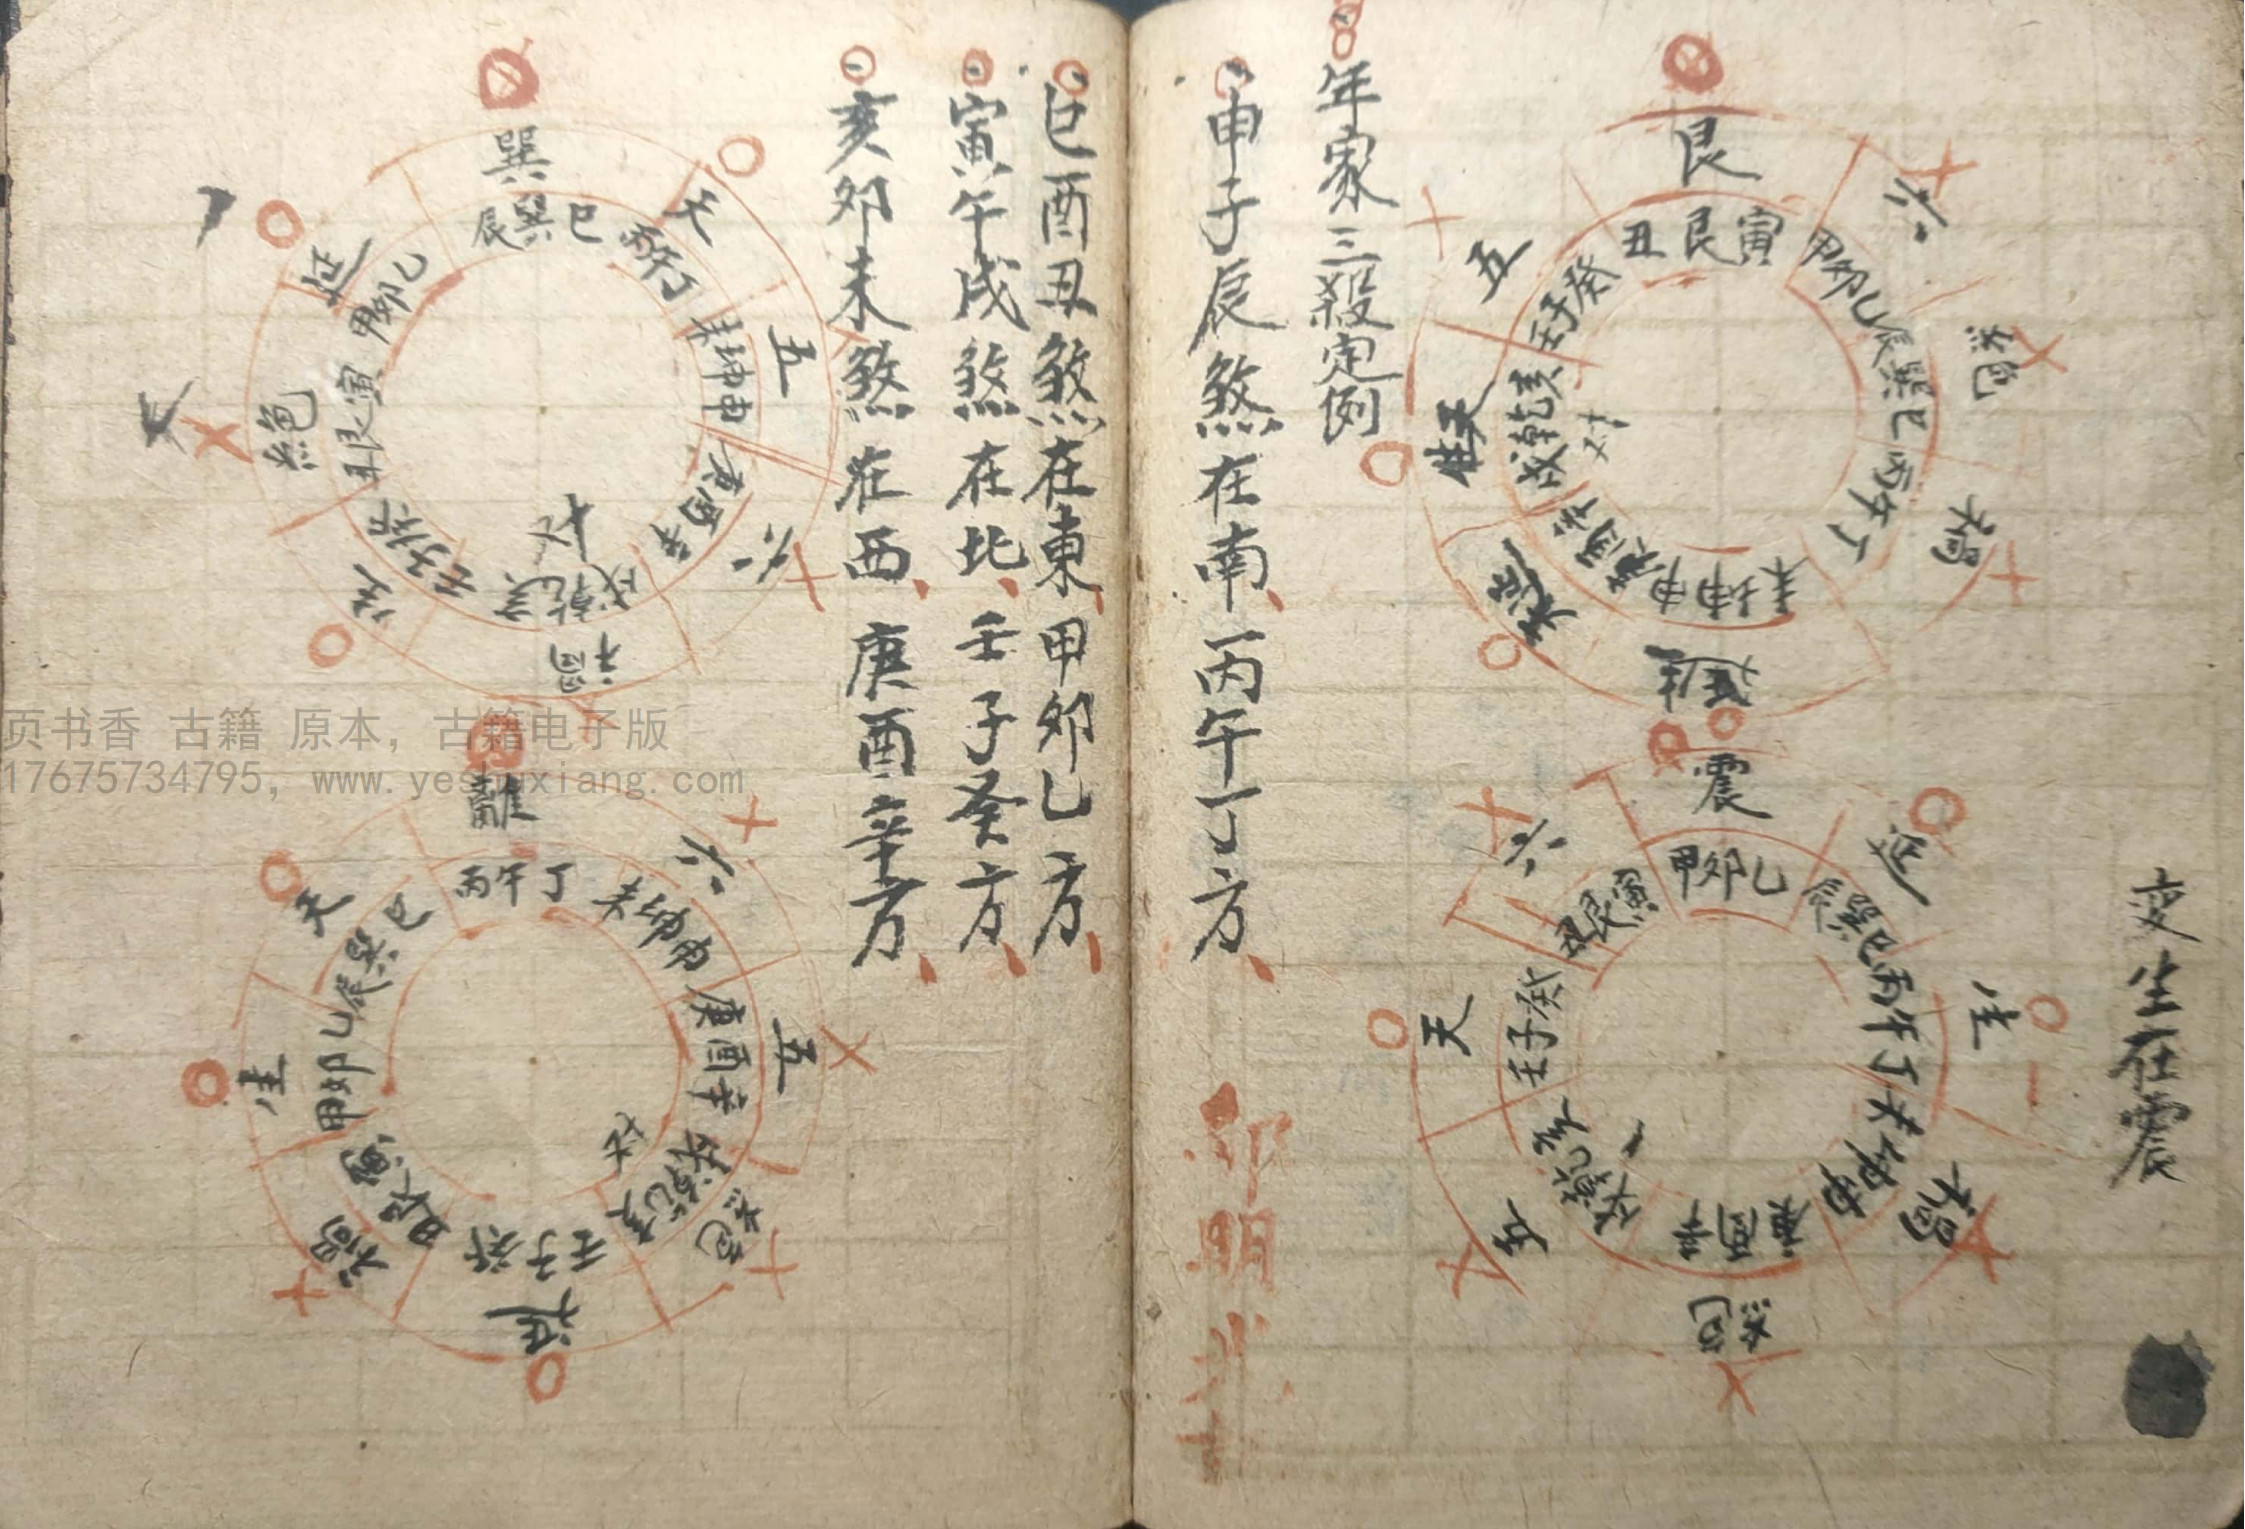 變生在震
艮
丑艮寅
甲卯乙
辰巽巳
丙午丁
未坤申
庚酉辛
戌乾亥
壬子癸
六
絕
禍
延
天
五
震
甲卯乙
辰巽巳
丙午丁
未坤申
庚酉辛
戌乾亥
壬子癸
丑艮寅
延
生
禍
絕
五
天
六
年家三殺定例
申子辰煞在南丙午丁方
巳酉丑煞在東甲卯乙方
寅午戌煞在北壬子癸方
亥卯未煞在西庚酉辛方
巽
辰巽巳
丙午丁
未坤申
庚酉辛
戌乾亥
壬子癸
丑艮寅
甲卯乙
天
五
六
禍
生
絕
延
離
丙午丁
未坤申
庚酉辛
戌乾亥
壬子癸
丑艮寅
甲卯乙
辰巽巳
六
五
絕
延
禍
生
天
页书香 古籍 原本，古籍电子版
17675734795，www.yeshuxiang.com